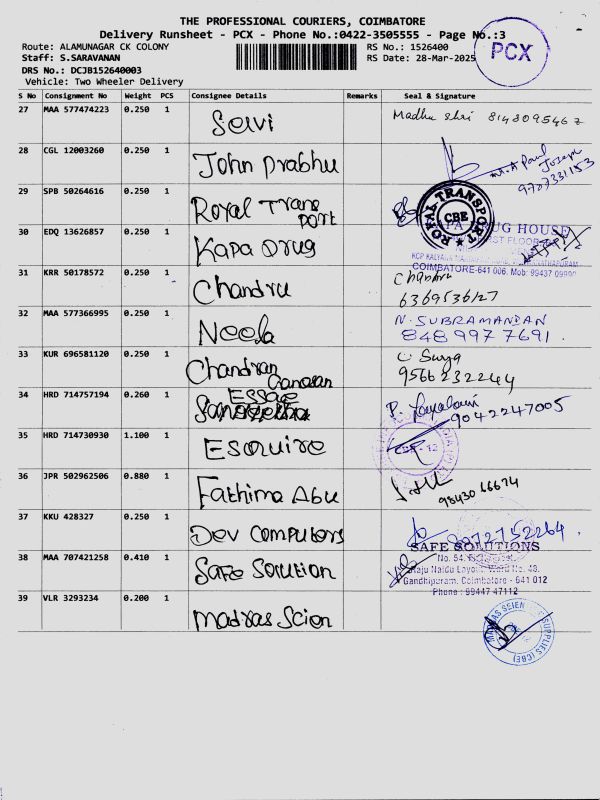 THE PROFESSIONAL COURIERS, COIMBATORE
Delivery Runsheet - PCX - Phone No.:0422-3505555 - Page No.:3
Route: ALAMUNAGAR CK COLONY RS No.: 1526400
Staff: S.SARAVANAN RS Date: 28-Mar-2025
PCX
DRS No.: DCJB152640003
Vehicle: Two Wheeler Delivery
S No Consignment No Weight PCS Consignee Details Remarks Seal & Signature
27 MAA 577474223 0.250 1 Selvi Madhu shri 8143095467
28 CGL 12003260 0.250 1 John prabhu A Paul Joseph 9707331153
29 SPB 50264616 0.250 1 Royal Trans port ROYAL TRANSPORT CBE
30 EDQ 13626857 0.250 1 Kapa Drug DRUG HOUSE
FIRST FLOOR
COIMBATORE-641 006. Mob: 99437 09990
31 KRR 50178572 0.250 1 Chandru Chandru
6369536127
32 MAA 577366995 0.250 1 Neela N. SUBRAMANIAN
848 997 7691.
33 KUR 696581120 0.250 1 Chandran Ganasan C Surya
9566232244
34 HRD 714757194 0.260 1 Essae P. 9042247005
35 HRD 714730930 1.100 1 Esquire
36 JPR 502962506 0.880 1 Fathima Abu 9843066674
37 KKU 428327 0.250 1 Dev Computers 9872752264.
38 MAA 707421258 0.410 1 Safe Solution SAFE SOLUTIONS
No. 54,
Raju Naidu Layout, Ward No. 48,
Gandhipuram, Coimbatore - 641 012
Phone : 99447 47112
39 VLR 3293234 0.200 1 Madras Scien MADRAS SEIEN SUPPLIES (CBE)